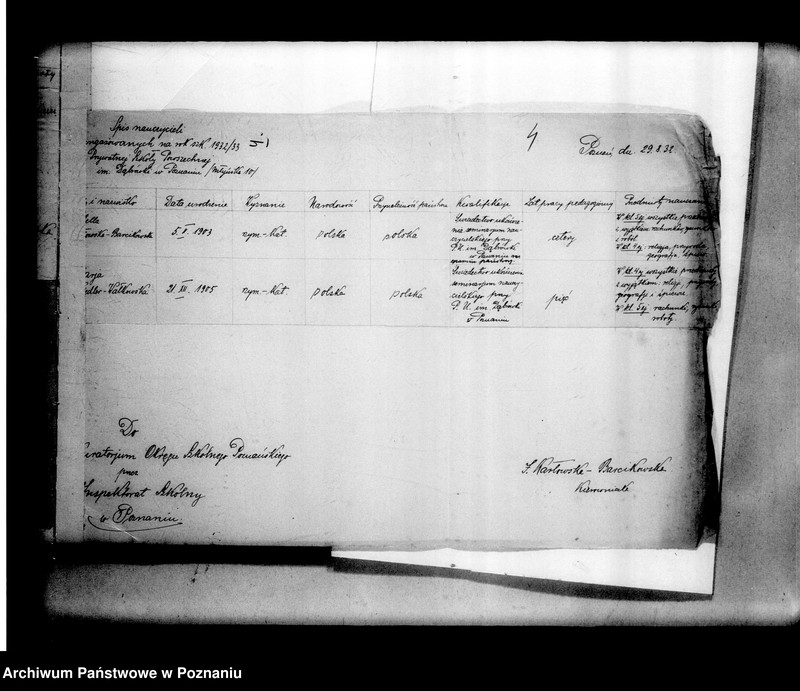 Spis nauczycieli
ngażowanych na rok szk. 1932/33
Prywatnej Szkoły Powszechnej
im. Dąbrówki w Poznaniu
4
Poznań dn. 29.8.32.
i nazwisko
Data urodzenia
Wyznanie
Narodowość
Przynależność państw.
Kwalifikacje
Lat pracy pedagogicznej
Przedmioty nauczania
owska-Barcikowska
5. 1903
rzym-kat.
polska
polska
Świadectwo ukończe-
nia seminarjum nau-
czycielskiego przy
P. U. im. Dąbrówki
w Poznaniu
cztery
W kl. 3ej wszystkie przedm.
z wyjątkiem rachunków,
i robót
W kl. 4ej religja, przyroda,
geografja, śpiew
21. XII. 1905
rzym-kat.
polska
polska
Świadectwo ukończenia
seminarjum nauczy-
cielskiego przy
P. U. im. Dąbrówki
w Poznaniu
pięć
W kl. 4ej wszystkie przedmioty
z wyjątkiem religji, przyrody,
geografji i śpiewu
W kl. 3ej rachunki,
roboty.
Do
uratorjum Okręgu Szkolnego Poznańskiego
przez
Inspektorat Szkolny
w Poznaniu.
S. Karłowska-Barcikowska
Kierowniczka
Archiwum Państwowe w Poznaniu